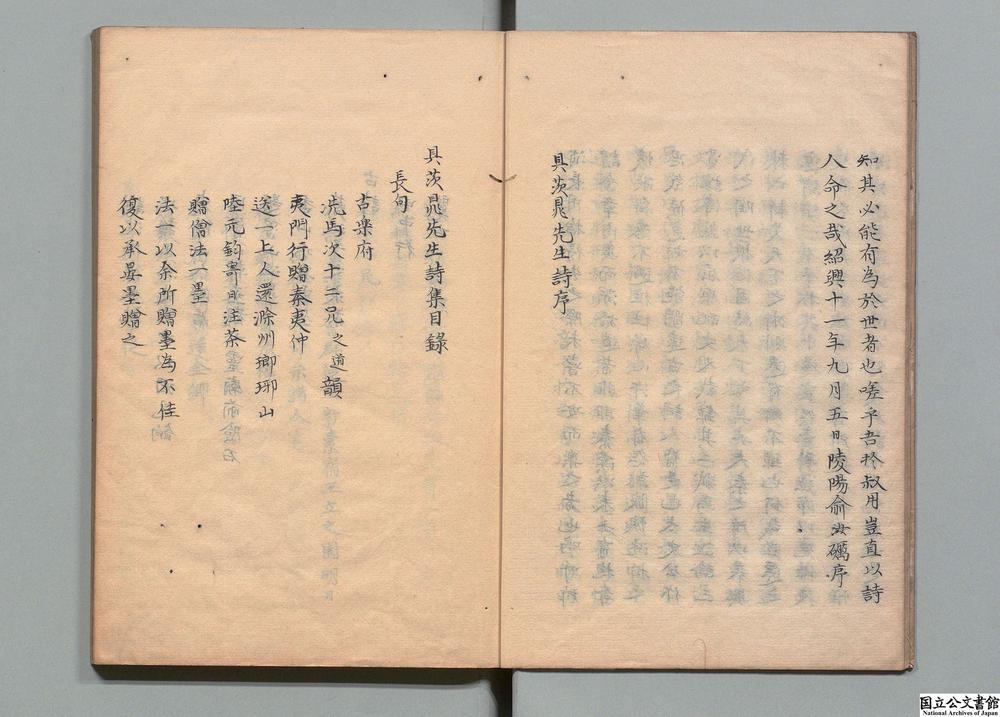 知其必能有為於世者也嗟乎吾於叔用豈直以詩
人命之哉紹興十一年九月五日陵陽俞汝礪序
具茨晁先生詩序
具茨晁先生詩集目錄
長句
古樂府
次十二兄之道韻
夷門行贈秦夷仲
送一上人還滁州瑯琊山
陸元鈞寄日注茶
贈僧法一墨
法一以余所贈墨為不佳
復以承晏墨贈之
国立公文書館
National Archives of Japan